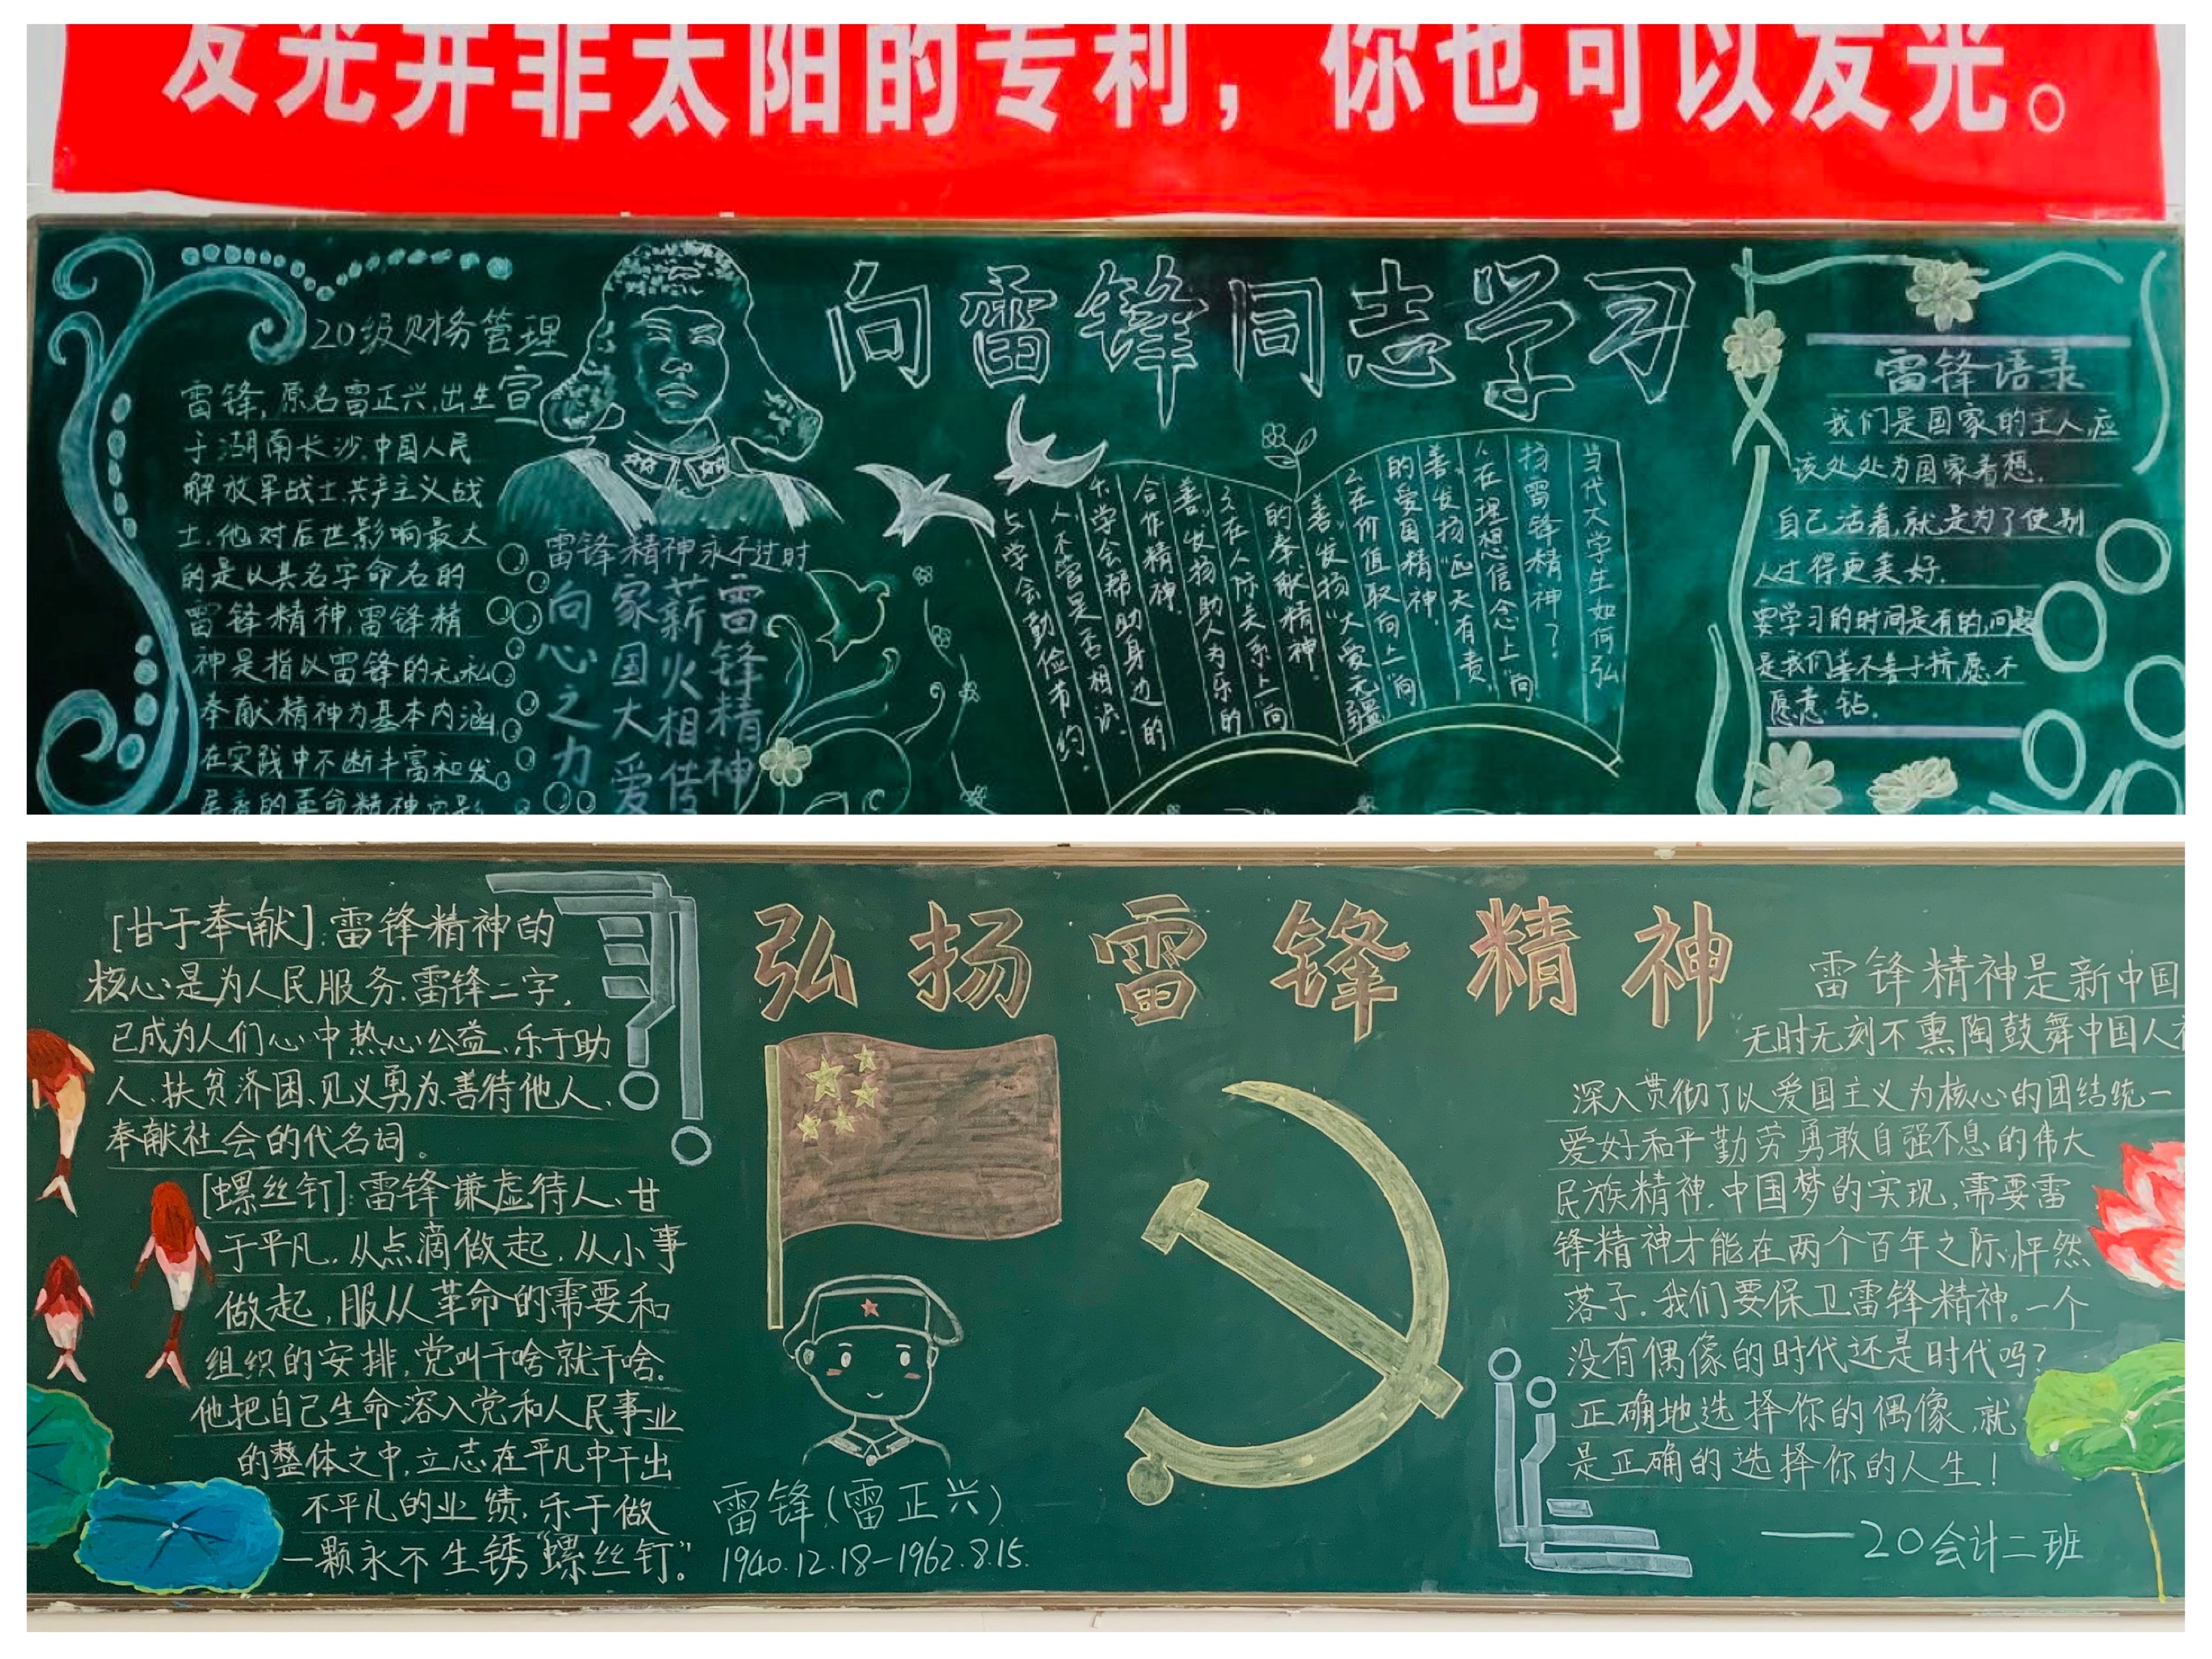 发光并非太阳的专利，你也可以发光。
向雷锋同志学习
20级财务管理
雷锋,原名雷正兴,出生
于湖南长沙.中国人民
解放军战士.共产主义战
士.他对后世影响最大
的是以其名字命名的
雷锋精神,雷锋精
神是指以雷锋的无私
奉献精神为基本内涵,
在实践中不断丰富和发
展着的革命精神
宣
雷锋精神永不过时
雷锋精神
薪火相传
家国大爱
向心之力
当代大学生如何弘
扬雷锋精神？
1.在理想信念上"向
善",发扬"匹天有责"
的爱国精神.
2.在价值取向上"向
善",发扬"大爱无疆"
的奉献精神.
3.在人际关系上"向
善",发扬助人为乐的
合作精神.
4.学会帮助身边的
人,不管是否相识.
5.学会勤俭节约.
雷锋语录
我们是国家的主人,应
该处处为国家着想.
自己活着,就是为了使别
人过得更美好.
要学习的时间是有的,问题
是我们善不善于挤,愿不
愿意钻.
弘扬雷锋精神
[甘于奉献]:雷锋精神的
核心是为人民服务.雷锋二字,
已成为人们心中热心公益、乐于助
人、扶贫济困、见义勇为、善待他人、
奉献社会的代名词。
[螺丝钉]:雷锋谦虚待人、甘
于平凡.从点滴做起,从小事
做起,服从革命的需要和
组织的安排,党叫干啥就干啥.
他把自己生命溶入党和人民事业
的整体之中,立志在平凡中干出
不平凡的业绩,乐于做
一颗永不生锈"螺丝钉"。
雷锋(雷正兴)
1940.12.18-1962.8.15.
雷锋精神是新中国
无时无刻不熏陶鼓舞中国人
深入贯彻了以爱国主义为核心的团结统一
爱好和平勤劳勇敢自强不息的伟大
民族精神.中国梦的实现,需要雷
锋精神才能在两个百年之际,怦然
落子.我们要保卫雷锋精神。一个
没有偶像的时代还是时代吗?
正确地选择你的偶像,就
是正确的选择你的人生!
——20会计二班